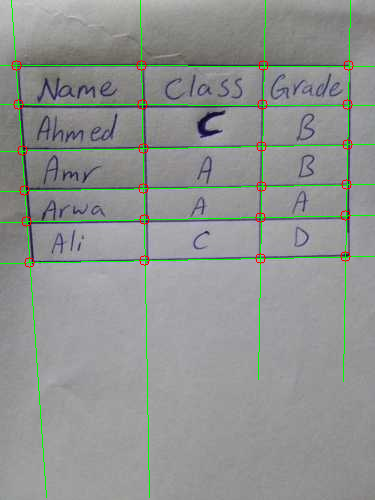 Name Class Grade
Ahmed C B
Amr A B
Arwa A A
Ali C D